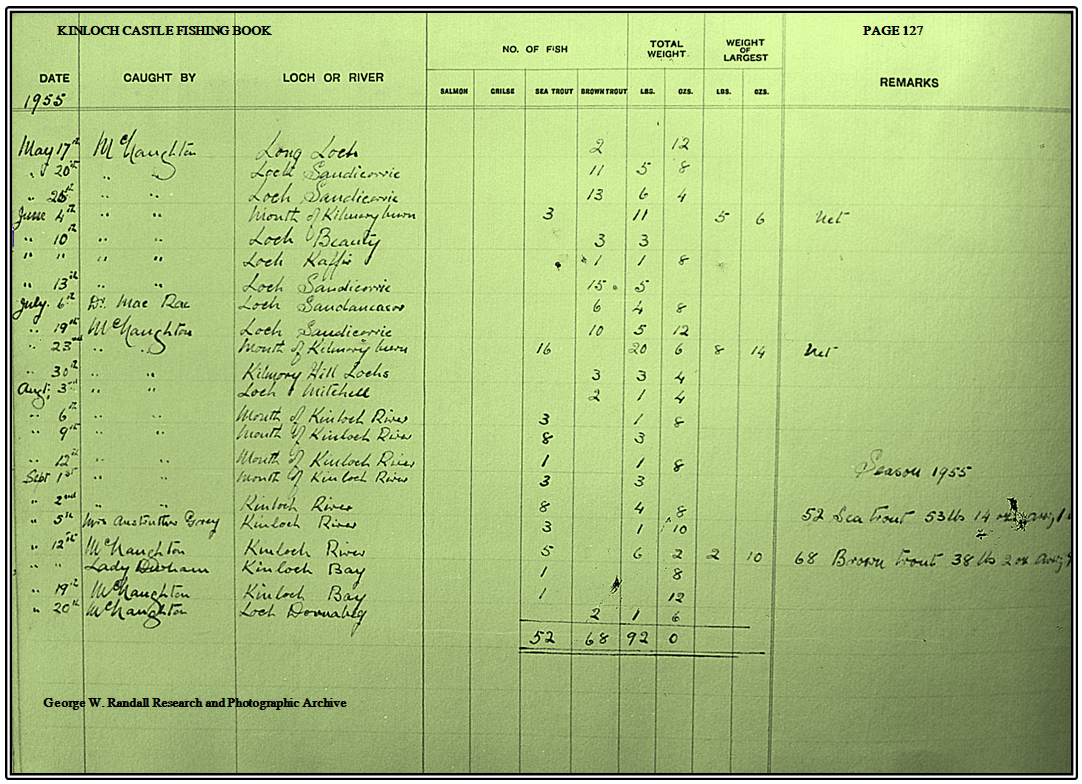 KINLOCH CASTLE FISHING BOOK PAGE 127
NO. OF FISH TOTAL WEIGHT WEIGHT OF LARGEST
DATE CAUGHT BY LOCH OR RIVER REMARKS
SALMON GRILSE SEA TROUT BROWN TROUT LBS. OZS. LBS. OZS.
1955
May 17th McNaughton Long Loch 2 12
" 20th " " Loch Sandicorrie 11 5 8
" 25th " " Loch Sandicorrie 13 6 4
June 4th " " Mouth of Kilmory burn 3 11 5 6 Net
" 10th " " Loch Beauty 3 3
" " " " Loch 1 1 8
" 13th " " Loch Sandicorrie 15 5
July 6th Dr. Mac Rae Loch 6 4 8
" 19th McNaughton Loch Sandicorrie 10 5 12
" 23rd " " Mouth of Kilmory burn 16 20 6 8 14 Net
" 30th " " Kilmory Hill Lochs 3 3 4
Augt; 3rd " " Loch Mitchell 2 1 4
" 6th " " Mouth of Kinloch River 3 1 8
" 9th " " Mouth of Kinloch River 8 3
" 12th " " Mouth of Kinloch River 1 1 8
Season 1955
Sept 1st " " Mouth of Kinloch River 3 3
" 2nd " " Kinloch River 8 4 8
52 Sea trout 53 lbs 14
" 5th Mrs Anstruther Gray Kinloch River 3 1 10
" 12th McNaughton Kinloch River 5 6 2 2 10
68 Brown trout 38 lbs 2 oz
" " Lady Kinloch Bay 1 8
" 19th McNaughton Kinloch Bay 1 12
" 20th McNaughton Loch Dornabeg 2 1 6
52 68 92 0
George W. Randall Research and Photographic Archive